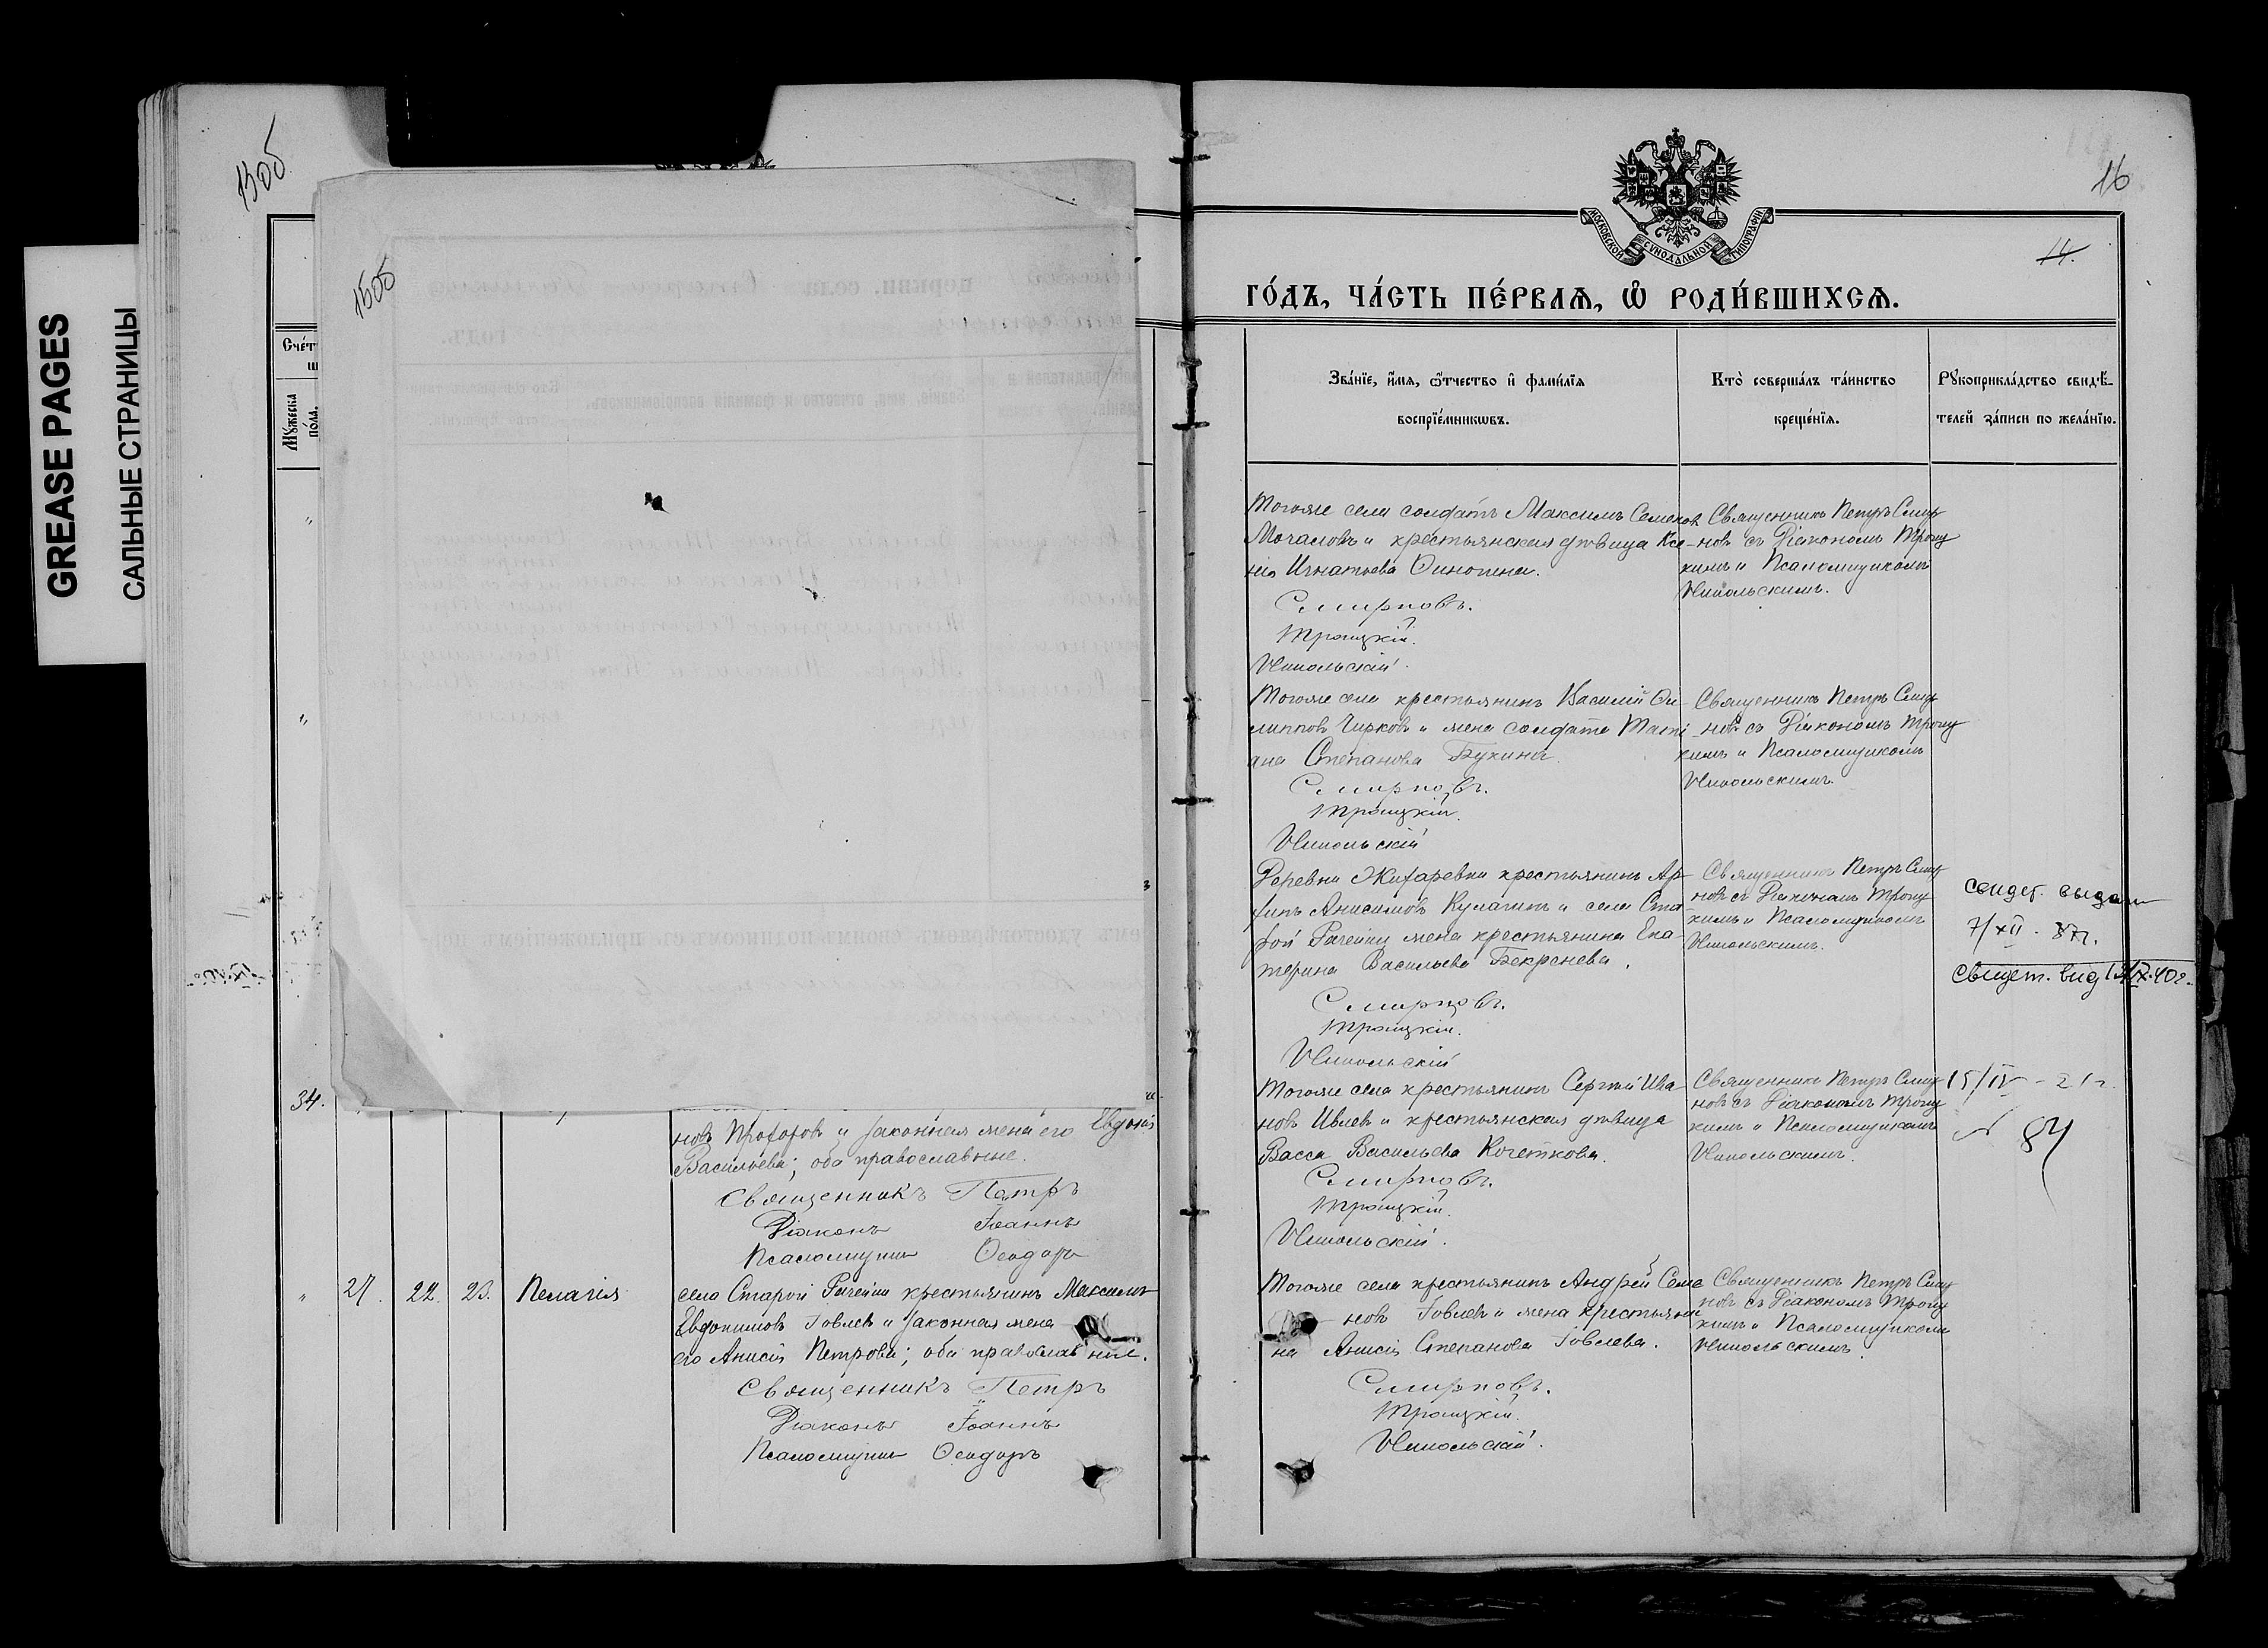 GREASE PAGES
САЛЬНЫЕ СТРАНИЦЫ
15об
15об
Счет
Мужеска
пола.
34.
новъ Прохоровъ и законная жена его Евдокія
Васильева; оба православные.
Священникъ Петръ
Діаконъ Іоаннъ
Псаломщикъ Ѳеодоръ
" 27. 22. 23. Пелагія
села Старой Рачейки крестьянинъ Максимъ
Евдокимовъ Іовлевъ и законная жена
его Анисія Петрова; оба православные.
Священникъ Петръ
Діаконъ Іоаннъ
Псаломщикъ Ѳеодоръ
16
14.
МОСКОВСКОЙ СѴНОДАЛЬНОЙ ТИПОГРАФІИ
ГО́ДЪ, ЧА́СТЬ ПЕ́РВАѦ, Ѿ РОДИ́ВШИХСѦ.
Зва́нїе, и҆́мѧ, ѻ҆́тчество и҆ фами́лїѧ
воспрїе́мникѡвъ.
Кто̀ соверша́лъ та́инство
креще́нїѧ.
Рꙋкоприкла́дство свидѣ́-
телей за́писи по жела́нїю.
Тогоже села солдатъ Максимъ Семеновъ
Мочаловъ и крестьянская дѣвица Ксе-
нія Игнатьева Финогина.
Смирновъ.
Троицкій.
Никольскій.
Священникъ Петръ Смир-
новъ съ Діакономъ Троиц-
кимъ и Псаломщикомъ
Никольскимъ.
Тогоже села крестьянинъ Василій Фи-
липповъ Чирковъ и жена солдата Тати-
ана Степанова Букина.
Смирновъ.
Троицкій.
Никольскій
Священникъ Петръ Смир-
новъ съ Діакономъ Троиц-
кимъ и Псаломщикомъ
Никольскимъ.
Деревни Жихаревки крестьянинъ Ар-
хипъ Анисимовъ Кулагинъ и села Ста-
рой Рачейки жена крестьянина Ека-
терина Васильева Бекренева.
Смирновъ.
Троицкій.
Никольскій
Священникъ Петръ Смир-
новъ съ Діакономъ Троиц-
кимъ и Псаломщикомъ
Никольскимъ.
свидет. выдан
7/XII - 37г.
Свидет. выд
Тогоже села крестьянинъ Сергѣй Ива-
новъ Ивлевъ и крестьянская дѣвица
Васса Васильева Кочеткова.
Смирновъ.
Троицкій.
Никольскій.
Священникъ Петръ Смир-
новъ съ Діакономъ Троиц-
кимъ и Псаломщикомъ
Никольскимъ.
15/IV - 21г.
№ 84
Тогоже села крестьянинъ Андрей Семе-
новъ Іовлевъ и жена крестьяни-
на Анисія Степанова Іовлева.
Смирновъ.
Троицкій.
Никольскій.
Священникъ Петръ Смир-
новъ съ Діакономъ Троиц-
кимъ и Псаломщикомъ
Никольскимъ.